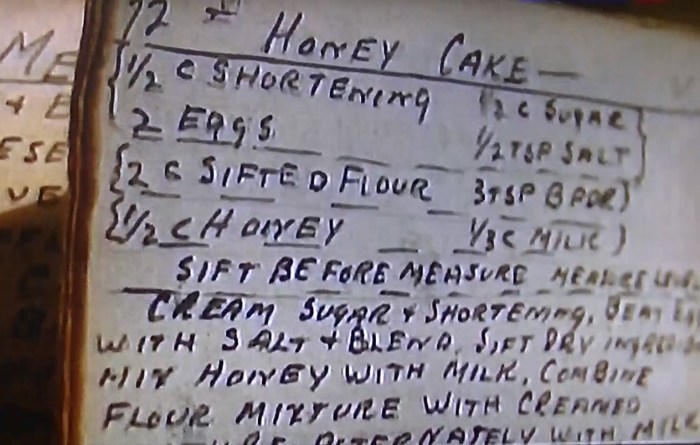 12 - HONEY CAKE —
1/2 C SHORTENING 1/2 C SUGAR
2 EGGS 1/2 TSP SALT
2 C SIFTED FLOUR 3 TSP B PDR
1/2 C HONEY 1/3 C MILK
SIFT BEFORE MEASURE
CREAM SUGAR & SHORTENING, BEAT
WITH SALT & BLEND. SIFT DRY
MIX HONEY WITH MILK, COMBINE
FLOUR MIXTURE WITH CREAMED
ALTERNATELY WITH MILK
ME
& E
ESE
VE